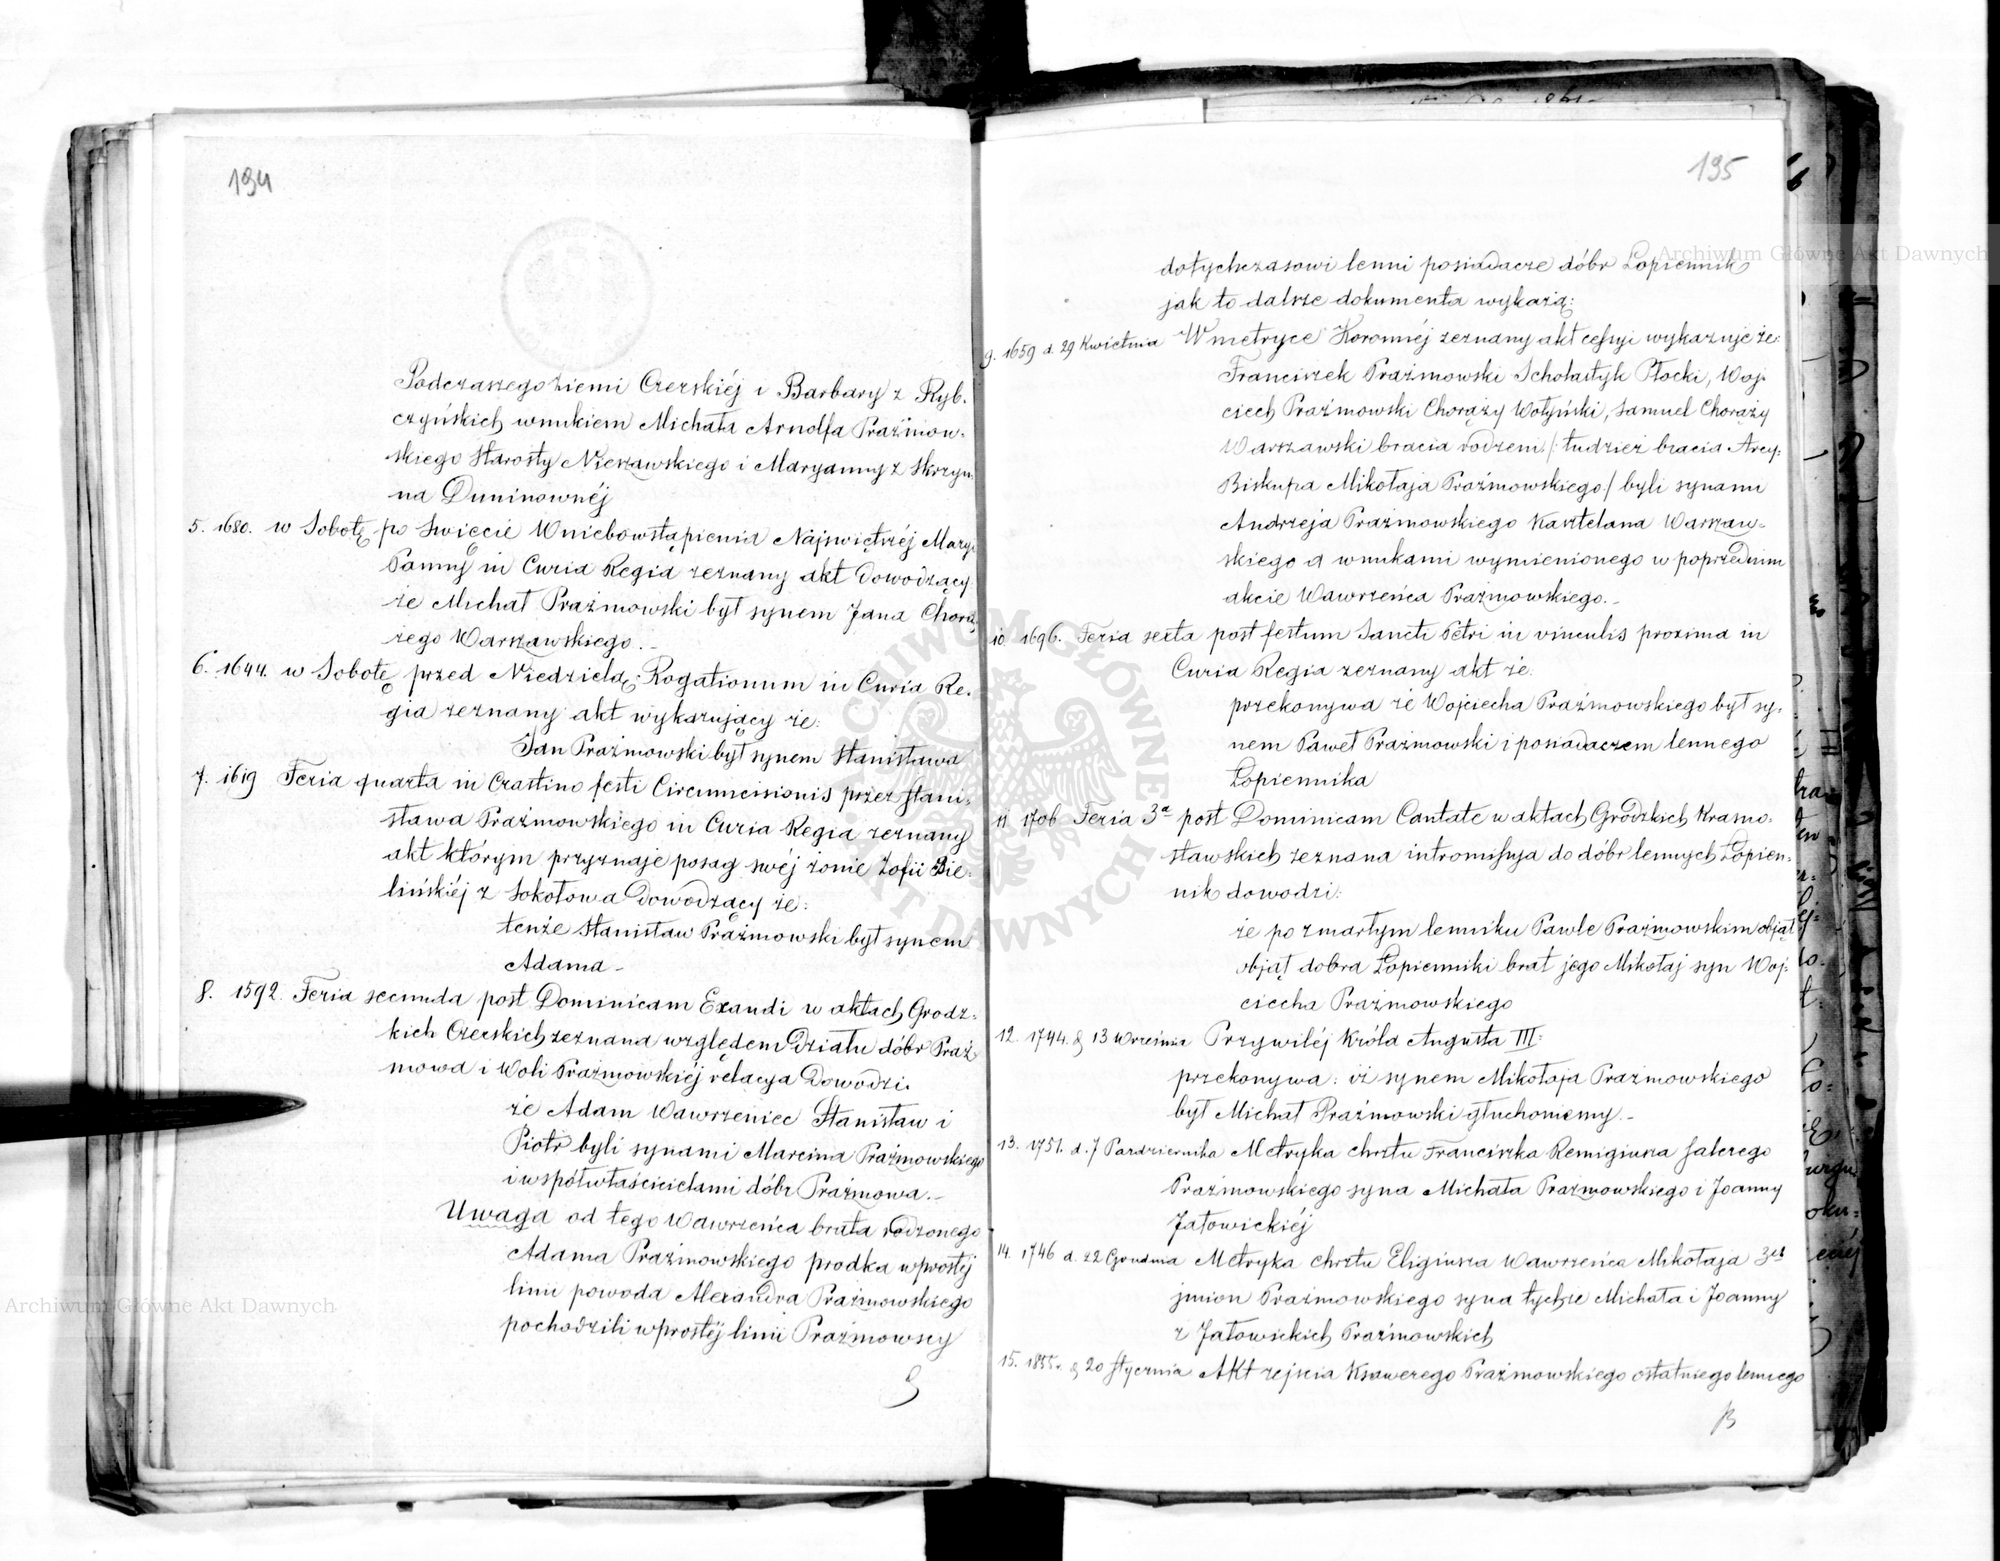 194
Podczaszego ziemi Czerskiéj i Barbary z Ryb-
czyńskich wnukiem Michała Arnolfa Prażmow-
skiego Starosty Nieszawskiego i Maryanny z Skrzyn-
na Duninownéj
5. 1680. w Sobotę po Swięcie Wniebowstąpienia Najswiętszéj Maryi
Panny in Curia Regia zeznany akt dowodzący
że Michał Prażmowski był synem Jana Chorą-
żego Warszawskiego.
6. 1644. w Sobotę przed Niedzielą Rogationum in Curia Re-
gia zeznany akt wykazujący że:
Jan Prażmowski był synem Stanisława
7. 1619 Feria quarta in Crastino festi Circumcisionis przez Stani-
sława Prażmowskiego in Curia Regia zeznany
akt którym przyznaje posag swéj żonie Zofii Bie-
lińskiéj z Sokołowa dowodzący że:
tenże Stanisław Prażmowski był synem
Adama
8. 1592. Feria secunda post Dominicam Exaudi w aktach Grodz-
kich Czerskich zeznana względem działu dóbr Praż-
mowa i Woli Prażmowskiéj relacya dowodzi.
że Adam Wawrzeniec Stanisław i
Piotr byli synami Marcina Prażmowskiego
i współwłaścicielami dóbr Prażmowa.
Uwaga od tego Wawrzeńca brata rodzonego
Adama Prażmowskiego prodka wprostéj
linii powoda Alexandra Prażmowskiego
pochodzili wprostéj linii Prażmowscy
195
dotychczasowi lenni posiadacze dóbr Łopiennik
jak to dalsze dokumenta wykażą:
9. 1659 d. 29 Kwietnia W metryce Koronnéj zeznany akt cessyi wykazuje że:
Franciszek Prażmowski Scholastyk Płocki, Woj-
ciech Prażmowski Chorąży Wołyński, Samuel Chorąży
Warszawski bracia rodzeni /: tudzież bracia Arcy-
Biskupa Mikołaja Prażmowskiego / byli synami
Andrzeja Prażmowskiego Kasztelana Warszaw-
skiego a wnukami wymienionego w poprzednim
akcie Wawrzeńca Prażmowskiego.
10. 1696. Feria sexta post festum Sancti Petri in vinculis proxima in
Curia Regia zeznany akt że:
przekonywa że Wojciecha Prażmowskiego był sy-
nem Paweł Prażmowski i posiadaczem lennego
Łopiennika
11 1706 Feria 3a post Dominicam Cantate w aktach Grodzkich Krasno-
stawskich zeznana intromissya do dóbr lennych Łopien-
nik dowodzi:
że po zmarłym lenniku Pawle Prażmowskim objął
objął dobra Łopienniki brat jego Mikołaj syn Woj-
ciecha Prażmowskiego
12. 1744. d 13 Września Przywiléj Króla Augusta III:
przekonywa: iż synem Mikołaja Prażmowskiego
był Michał Prażmowski głuchoniemy.
13. 1751. d. 7 Pazdziernika Metryka chrztu Franciszka Remigiusza Xawerego
Prażmowskiego syna Michała Prażmowskiego i Joanny
Jałowickiéj
14. 1746 d. 22 Grudnia Metryka chrztu Eligiusza Wawrzeńca Mikołaja 3ch
jmion Prażmowskiego syna tychże Michała i Joanny
z Jałowickich Prażmowskich
15. 1855. d 20 Stycznia Akt zejścia Ksawerego Prażmowskiego ostatniego lennego
Archiwum Główne Akt Dawnych
Archiwum Główne Akt Dawnych
ARCHIWUM GŁÓWNE AKT DAWNYCH